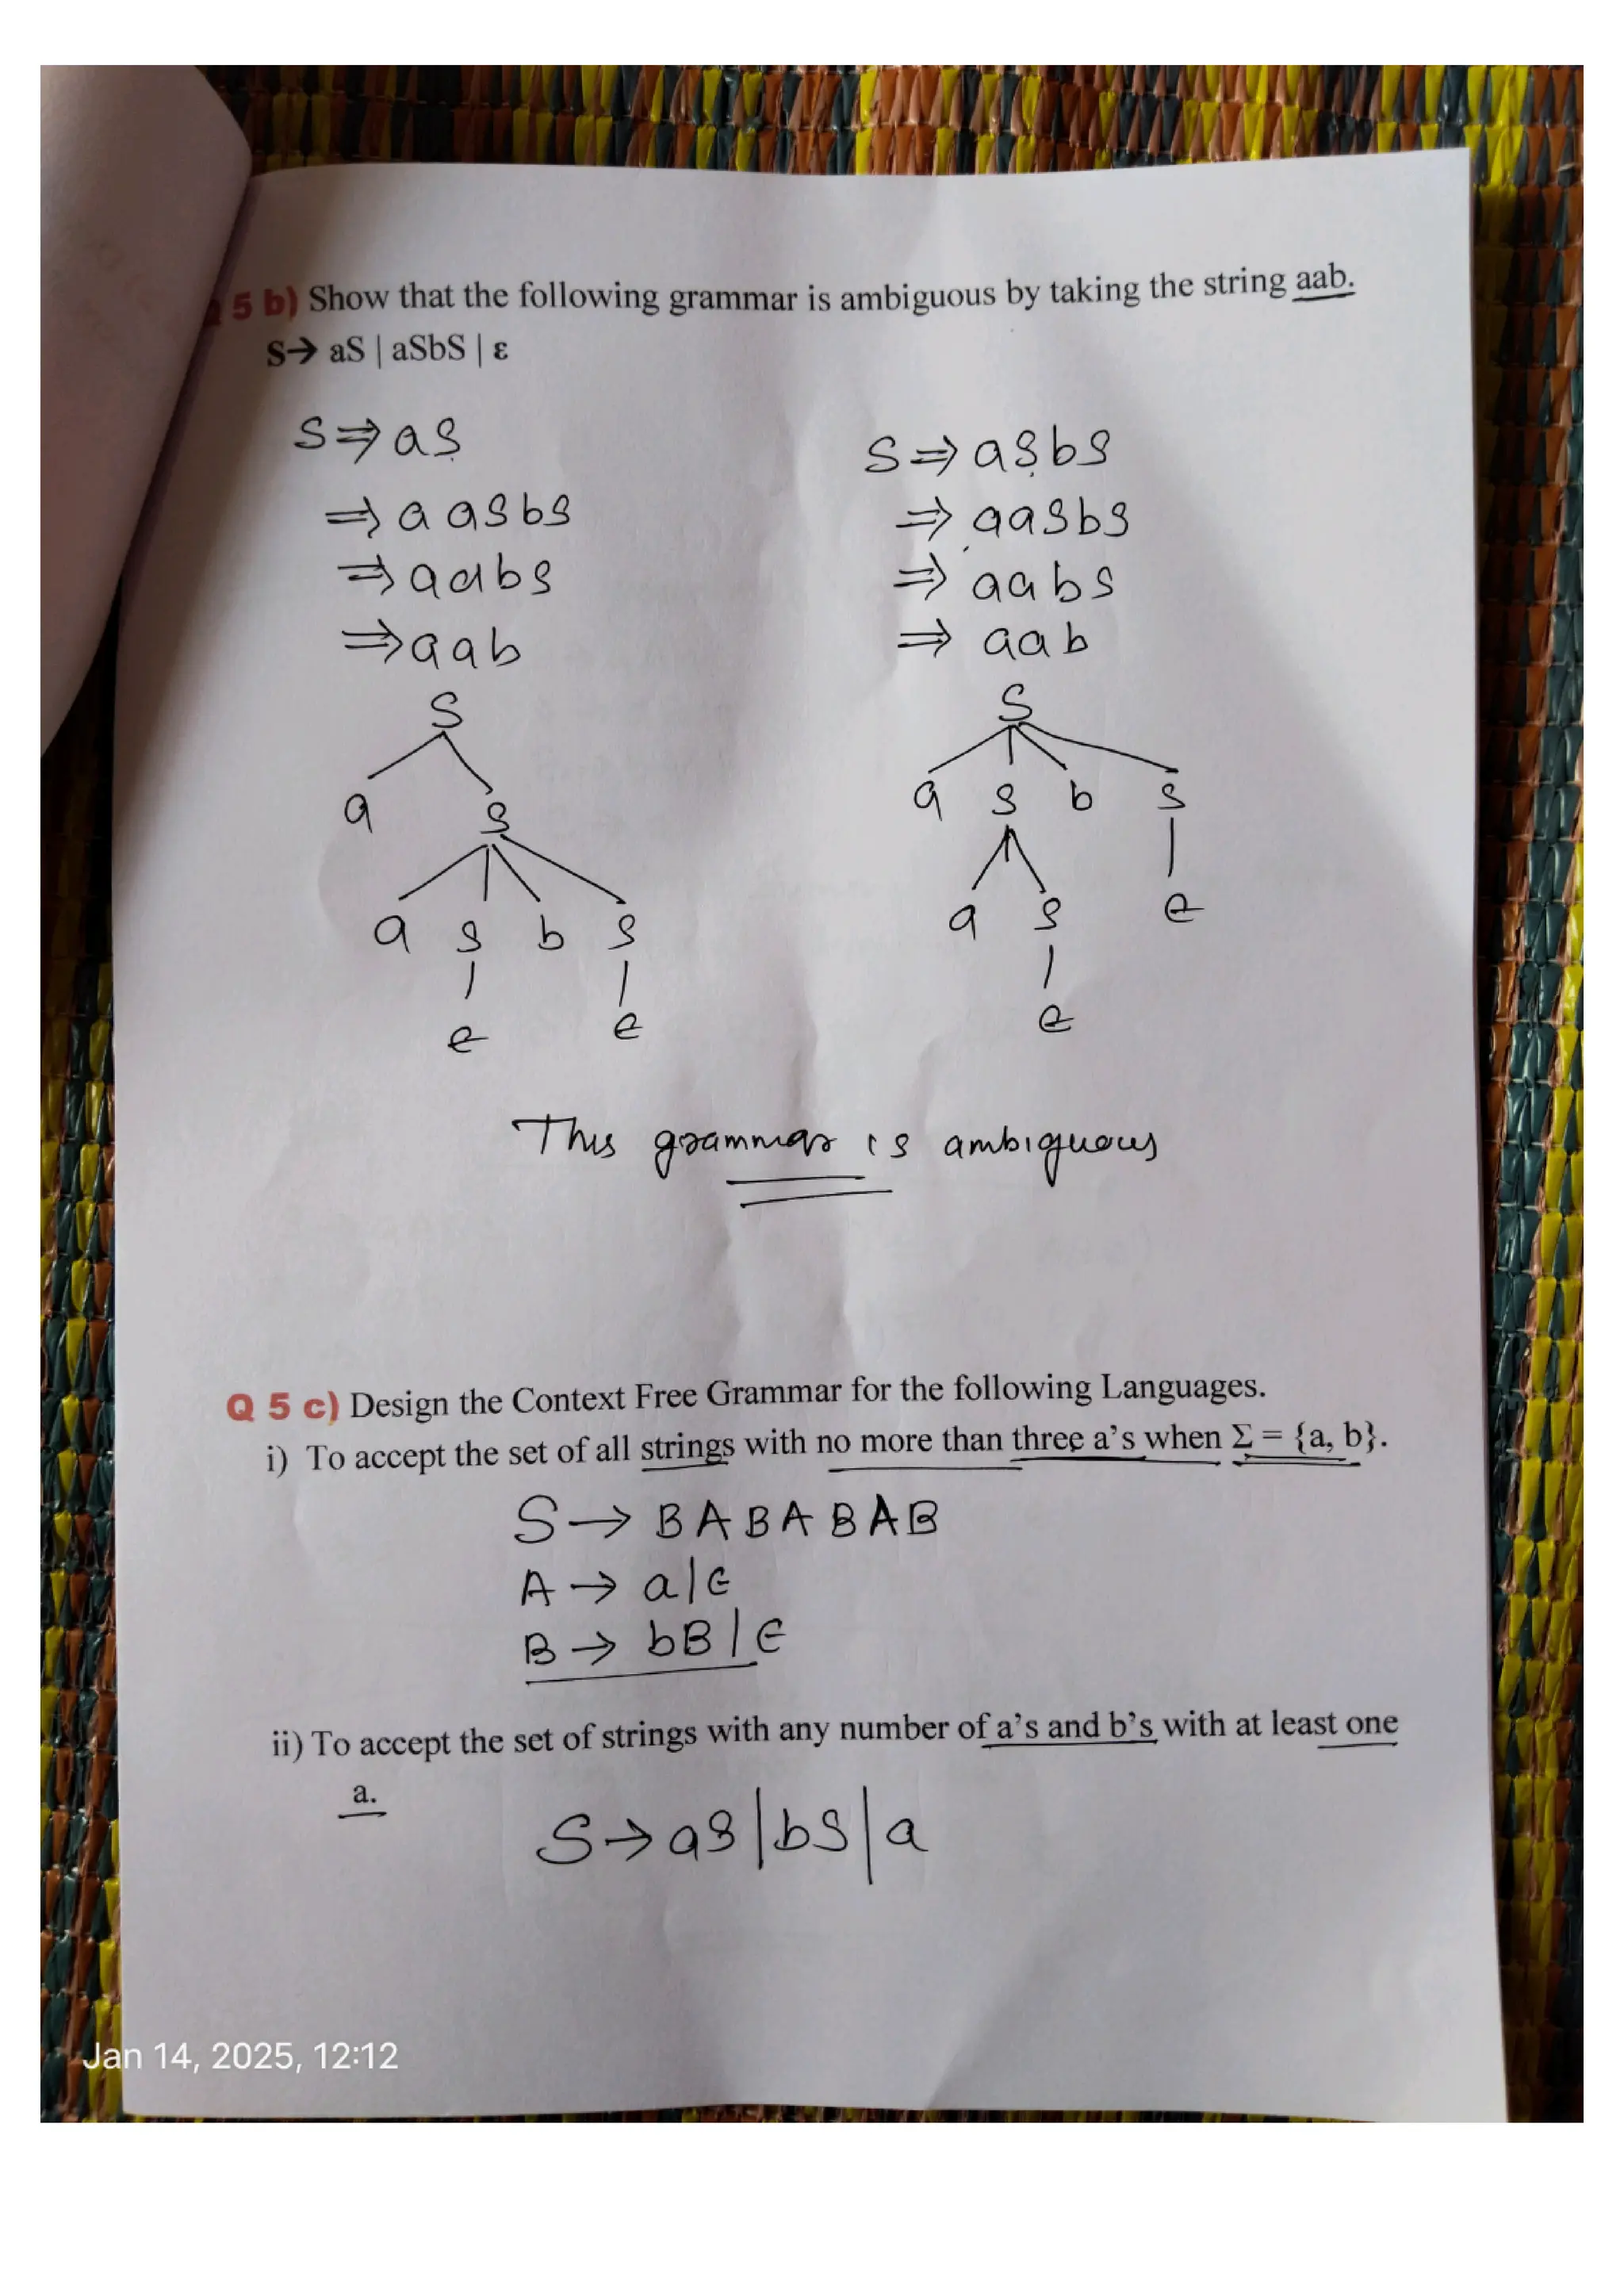 5 b) Show that the following grammar is ambiguous by taking the string aab.
S→ aS | aSbS | ε
S⇒ aS
⇒ a aSbS
⇒ aabS
⇒ aab
S
a S
a S b S
e e
S ⇒ aSbS
⇒ aaSbS
⇒ aabS
⇒ aab
S
a S b S
a S e
e
This grammar is ambiguous
Q 5 c) Design the Context Free Grammar for the following Languages.
i) To accept the set of all strings with no more than three a's when Σ = {a, b}.
S → BABABAB
A → a|ϵ
B → bB|ϵ
ii) To accept the set of strings with any number of a's and b's with at least one
a.
S → aS|bS|a
Jan 14, 2025, 12:12